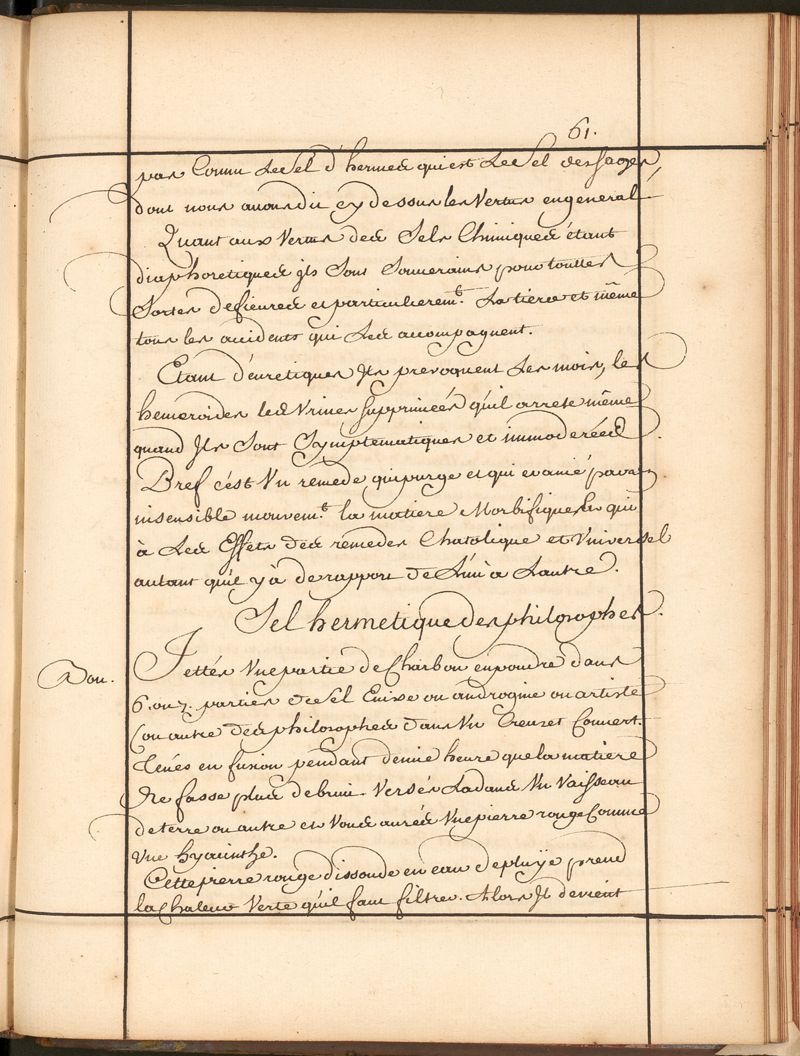 61.
pas Connu Le Sel d'hermes qui est Le Sel des sages,
dont nous auons dit cy dessus les Vertus en general
Quant aux Vertus des Sels Chimiques étant
diaphoretiques jls Sont Souuerains pour touttes
Sortes de fieures et particulierem.t La tierce et même
tous les accidents qui Les accompagnent.
Etant d'euretiques Jls prevoquent Les mois, les
hemeroides les Vrines supprimées qu'il arrete même
quand Jls Sont Symptematiques et immoderées.
Bref c'est Vn remede qui purge et qui par
insensible mouvem.t la matiere Morbifique qui
à Les Effets des remedes Chatolique et Vniversel
autant qu'il y à de rapport de L'un à Lautre.
Sel hermetique des philosophes.
Bon.
Jettés Vne partie de Charbon en poudre dans
6. ou 7. parties de Sel Enixe ou androgine ou artiste
Con autre des philosophes dans Vn Creuset Couvert.
Tenés en fusion pendant demie heure que la matiere
Ne fasse plus de bruit. Versés La dans Vn Vaisseau
de terre ou autre et Vous aurés Vne pierre rouge Comme
Vne hyacinthe.
Cette pierre rouge dissoude en eau de pluÿe prend
la Chaleur Verte qu'il faut filtrer. Alors Jl devient